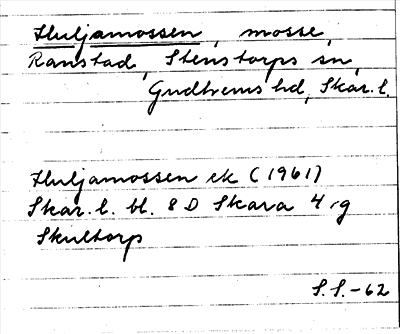 Huljamossen, mosse,
Ranstad, Stenstorps sn,
Gudhems hd, Skar. l.
Huljamossen ek (1961)
Skar. l. bl. 8 D Skara 4 g
Skultorp
S.S.-62